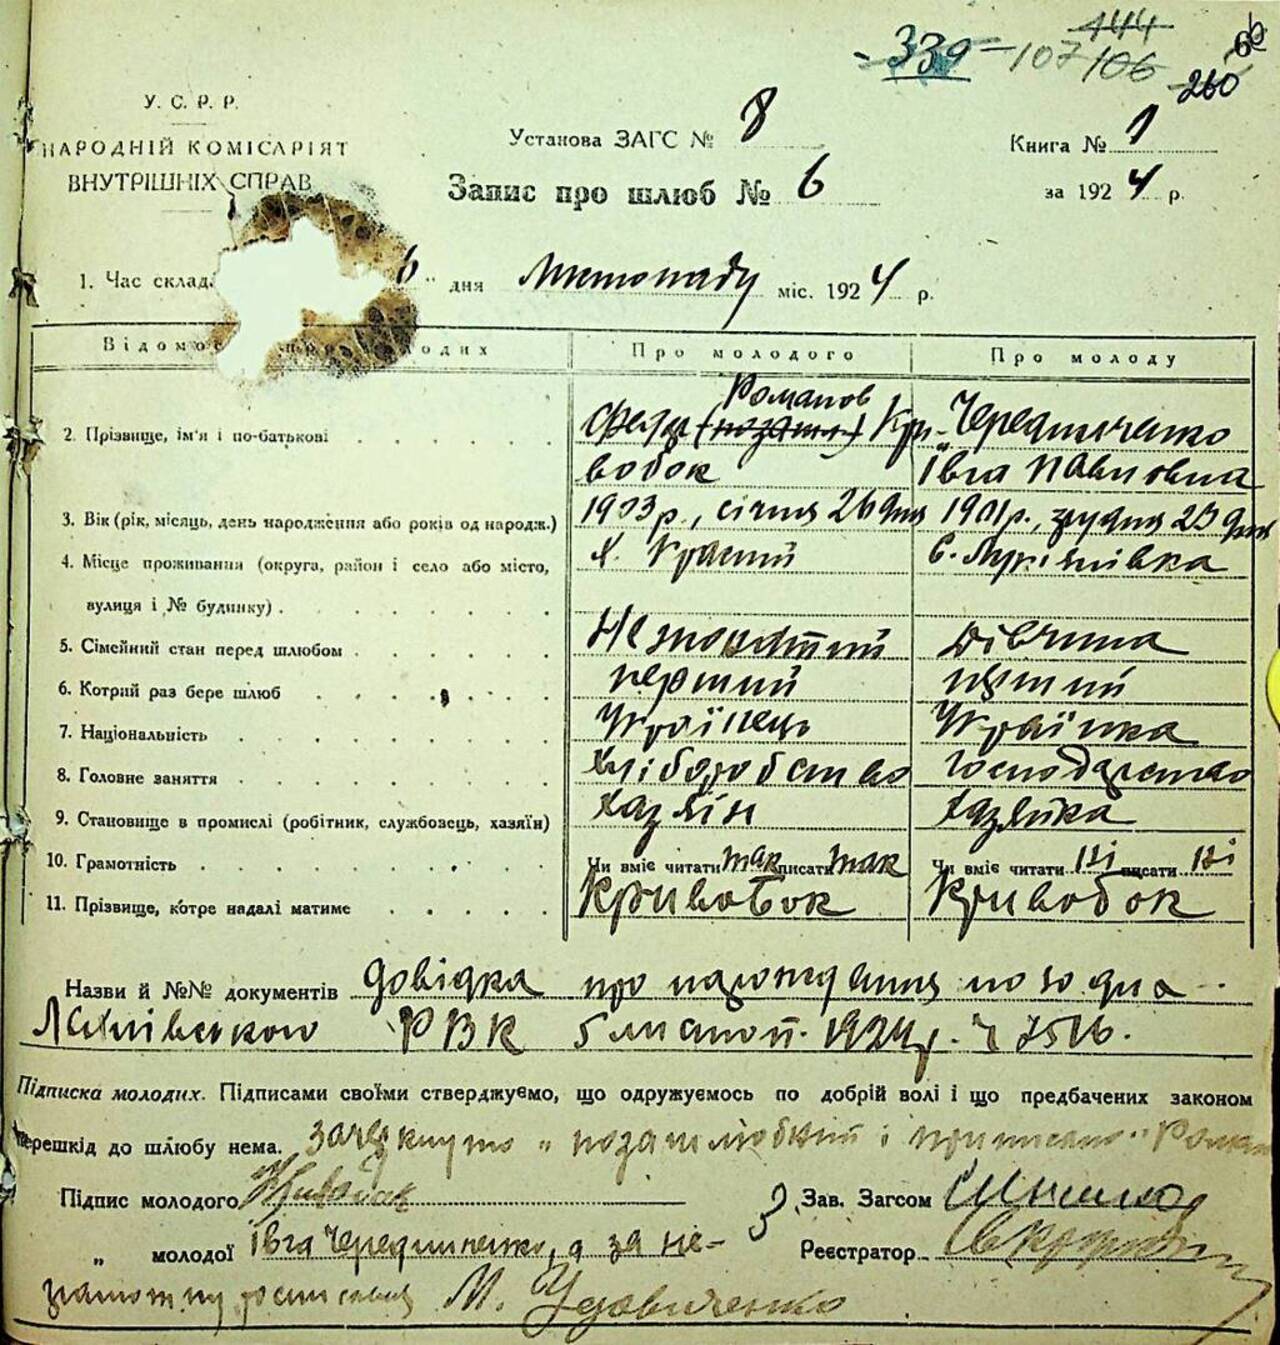 339 107 106 144 260
У. С. Р. Р.
НАРОДНІЙ КОМІСАРІЯТ
ВНУТРІШНІХ СПРАВ
Установа ЗАГС № 8
Книга № 1
Запис про шлюб № 6
за 1924 р.
1. Час склад 6 дня Листопаду міс. 1924 р.
Відомос про молодих
Про молодого
Про молоду
Романов
2. Прізвище, ім'я і по-батькові Федір (позашл) Кри- Чередниченко
вобок Івга Павловна
3. Вік (рік, місяць, день народження або років од народж.) 1903 р., січня 26 дня 1901 р., грудня 23 дня
4. Місце проживання (округа, район і село або місто, х. Красний с. Лукімівка
вулиця і № будинку)
5. Сімейний стан перед шлюбом Нежонатий дівчина
6. Котрий раз бере шлюб первий первий
7. Національність Українець Українка
8. Головне заняття Хліборобство господарство
9. Становище в промислі (робітник, службовець, хазяїн) хазяїн хазяйка
10. Грамотність Чи вміє читати так писати так Чи вміє читати ні писати ні
11. Прізвище, котре надалі матиме Кривобок Кривобок
Назви й №№ документів довідка про нарождення
РВК 5 листоп. 1924 р. ч 7516.
Підписка молодих. Підписами своїми стверджуємо, що одружуємось по добрій волі і що предбачених законом
перешкід до шлюбу нема. Зачеркнуто „позашлюбний і приписано" Роман
Підпис молодого Кривобок Зав. Загсом
„ молодої Івга Чередниченко, а за не- Реєстратор
грамотну росписався М. Удовиченко